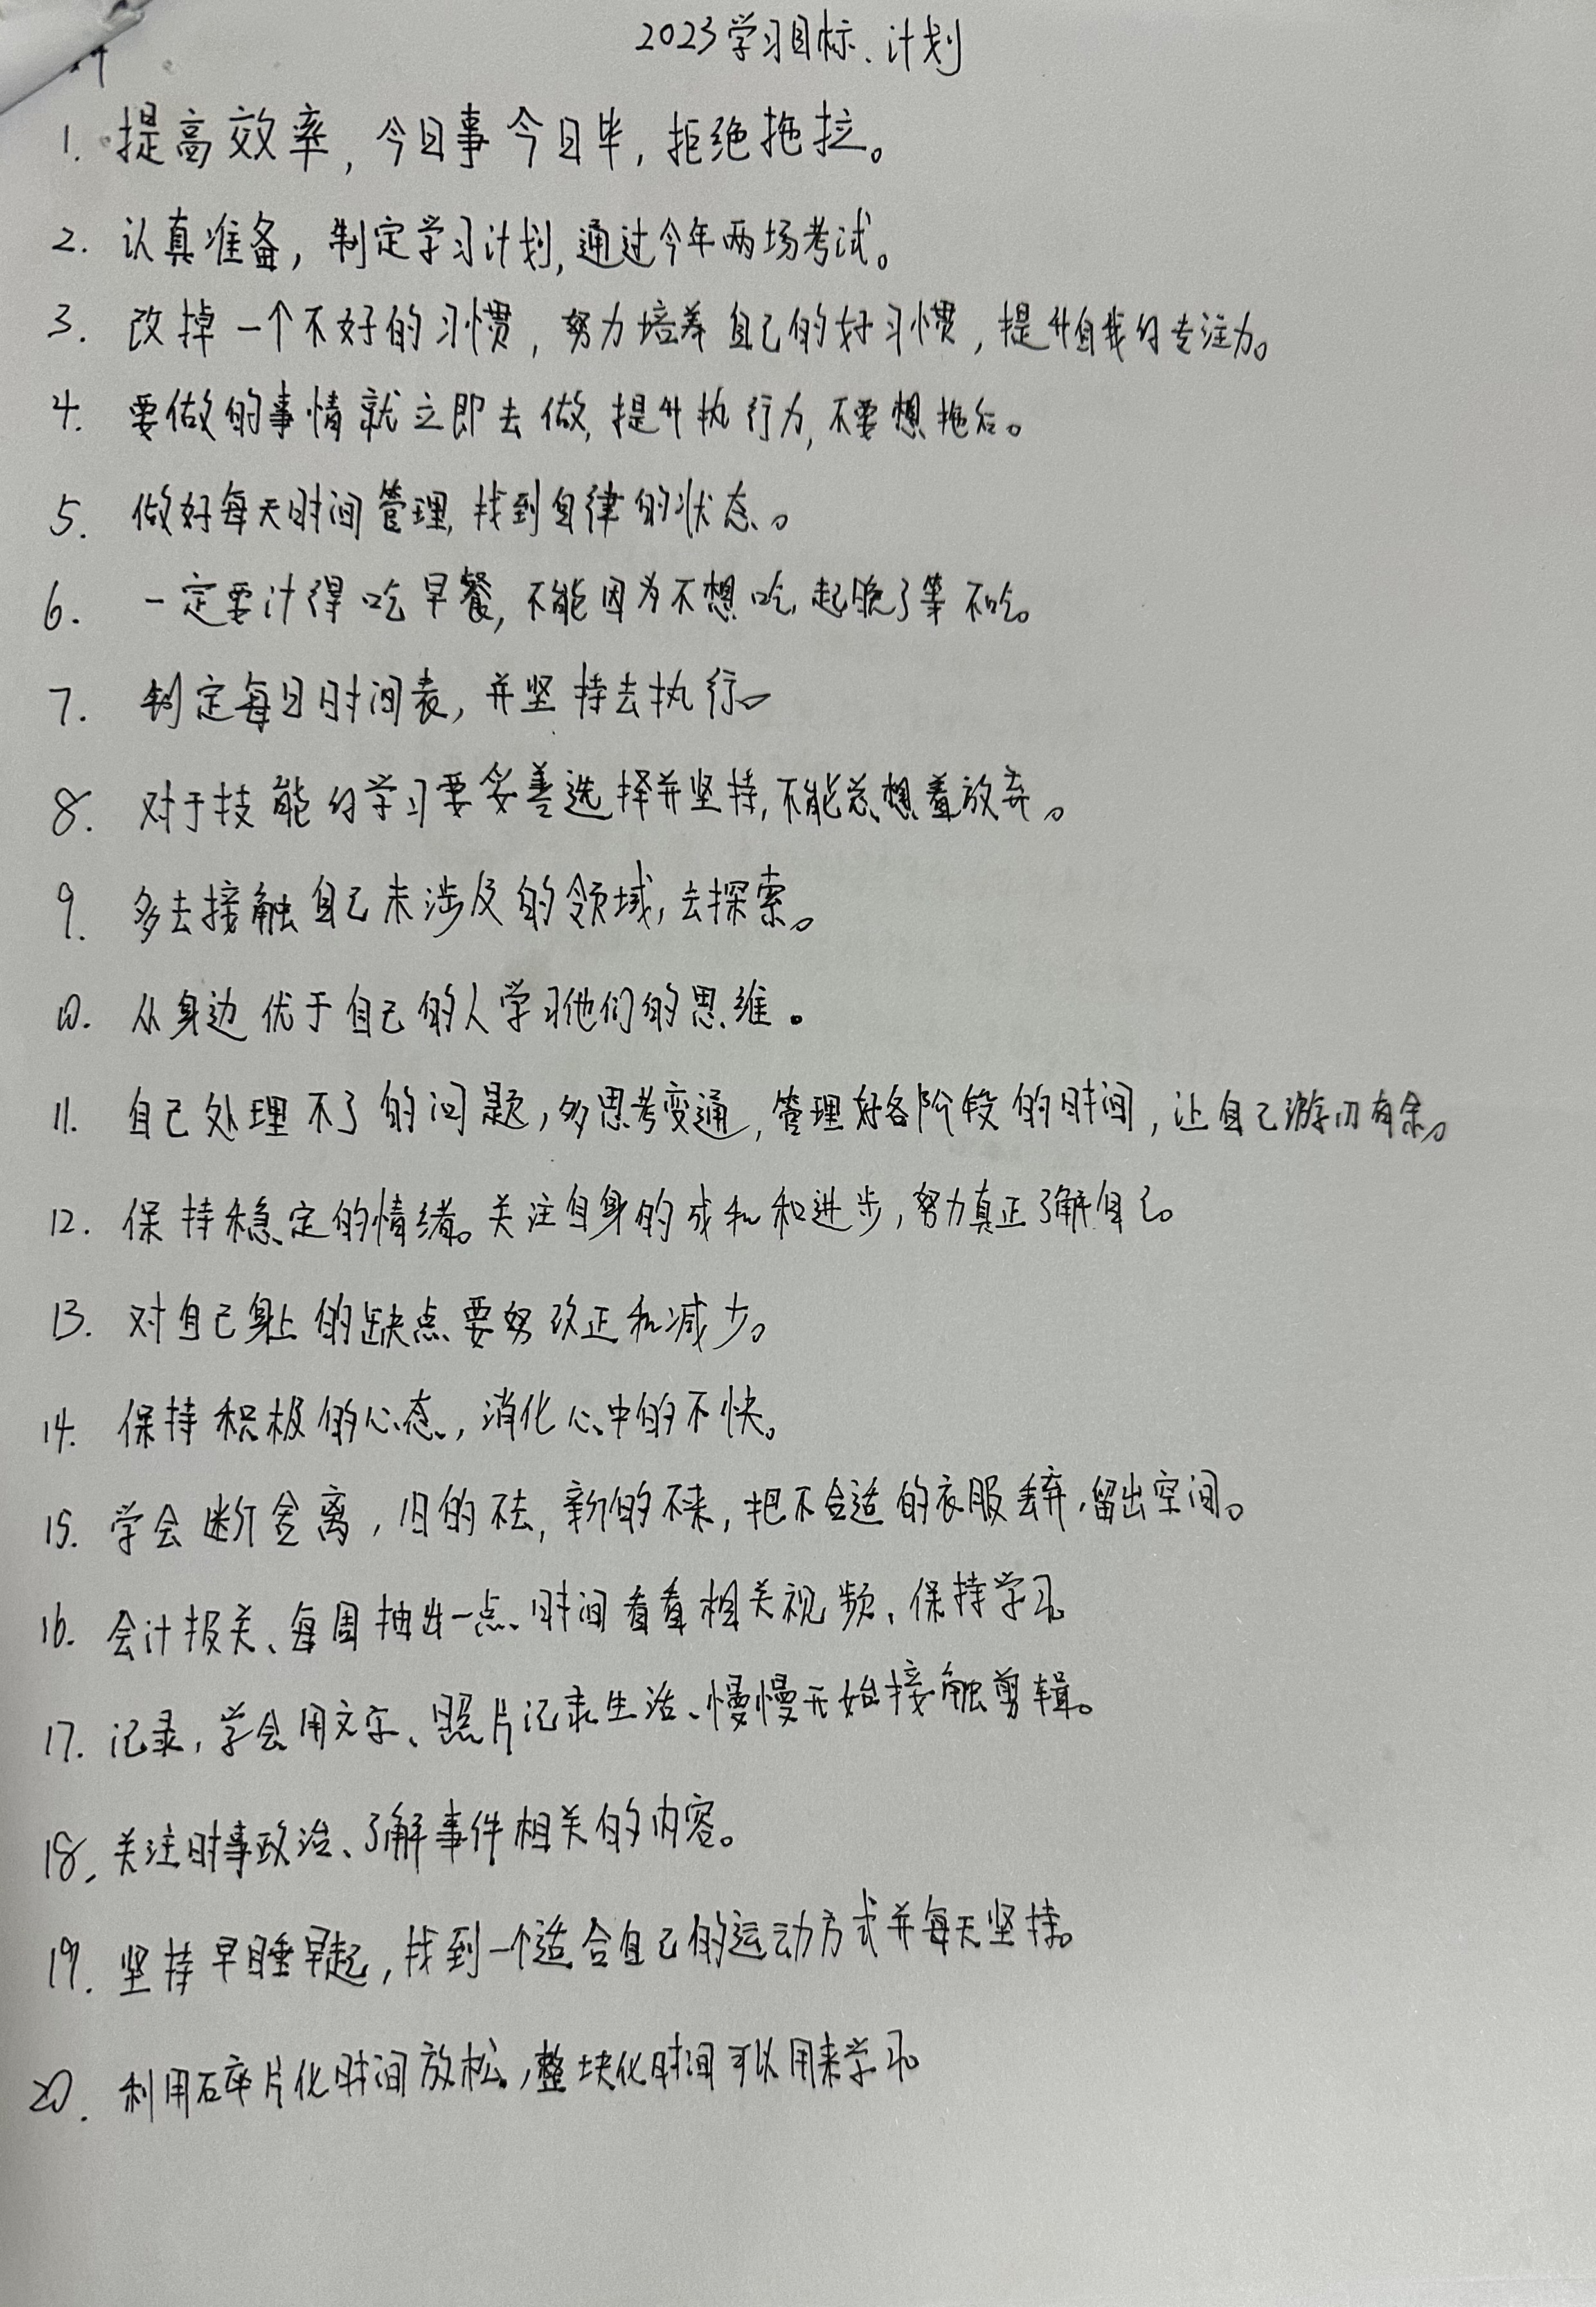 2023学习目标、计划
1. 提高效率,今日事今日毕,拒绝拖拉。
2. 认真准备,制定学习计划,通过今年两场考试。
3. 改掉一个不好的习惯,努力培养自己的好习惯,提升自我的专注力。
4. 要做的事情就立即去做,提升执行力,不要想拖后。
5. 做好每天时间管理,找到自律的状态。
6. 一定要计得吃早餐,不能因为不想吃,起晚了等不吃。
7. 制定每日时间表,并坚持去执行。
8. 对于技能的学习要妥善选择并坚持,不能总想着放弃。
9. 多去接触自己未涉及的领域,去探索。
10. 从身边优于自己的人学习他们的思维。
11. 自己处理不了的问题,多思考变通,管理好各阶段的时间,让自己游刃有余。
12. 保持稳定的情绪。关注自身的成和和进步,努力真正了解自己。
13. 对自己身上的缺点要努改正和减少。
14. 保持积极的心态,消化心中的不快。
15. 学会断舍离,旧的不去,新的不来,把不合适的衣服丢弃,留出空间。
16. 会计报关、每周抽出一点时间看看相关视频、保持学习。
17. 记录,学会用文字、照片记录生活、慢慢开始接触剪辑。
18. 关注时事政治、了解事件相关的内容。
19. 坚持早睡早起,找到一个适合自己的运动方式并每天坚持。
20. 利用碎片化时间放松,整块化时间可以用来学习。